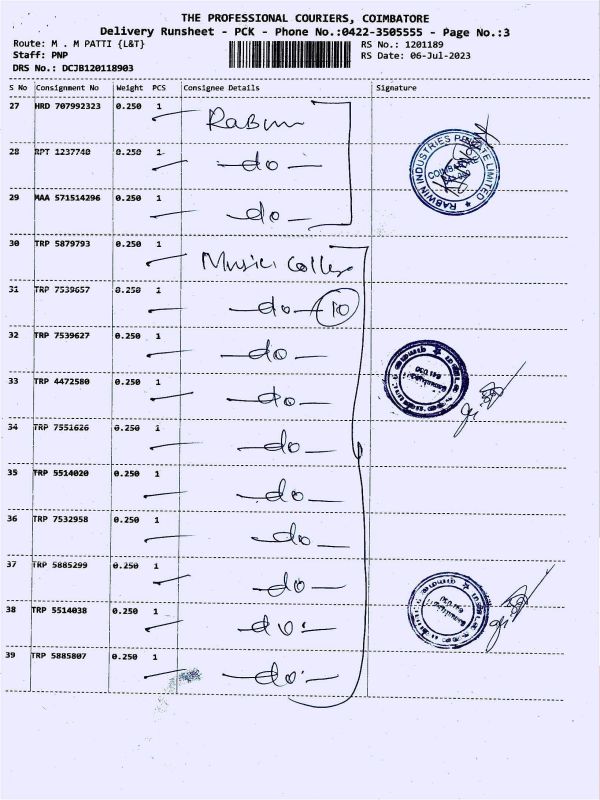 THE PROFESSIONAL COURIERS, COIMBATORE
Delivery Runsheet - PCK - Phone No.:0422-3505555 - Page No.:3
Route: M . M PATTI {L&T}
RS No.: 1201189
Staff: PNP
RS Date: 06-Jul-2023
DRS No.: DCJB120118903
S No Consignment No Weight PCS Consignee Details Signature
27 HRD 707992323 0.250 1
Rabwin
28 RPT 1237740 0.250 1
-do-
29 MAA 571514296 0.250 1
-do-
RABWIN INDUSTRIES PRIVATE LIMITED
COIMBATORE
30 TRP 5879793 0.250 1
Music College
31 TRP 7539657 0.250 1
-do- 10
32 TRP 7539627 0.250 1
-do-
33 TRP 4472580 0.250 1
-do-
34 TRP 7551626 0.250 1
-do-
35 TRP 5514020 0.250 1
-do-
36 TRP 7532958 0.250 1
-do-
37 TRP 5885299 0.250 1
-do-
38 TRP 5514038 0.250 1
-do-
39 TRP 5885807 0.250 1
-do-